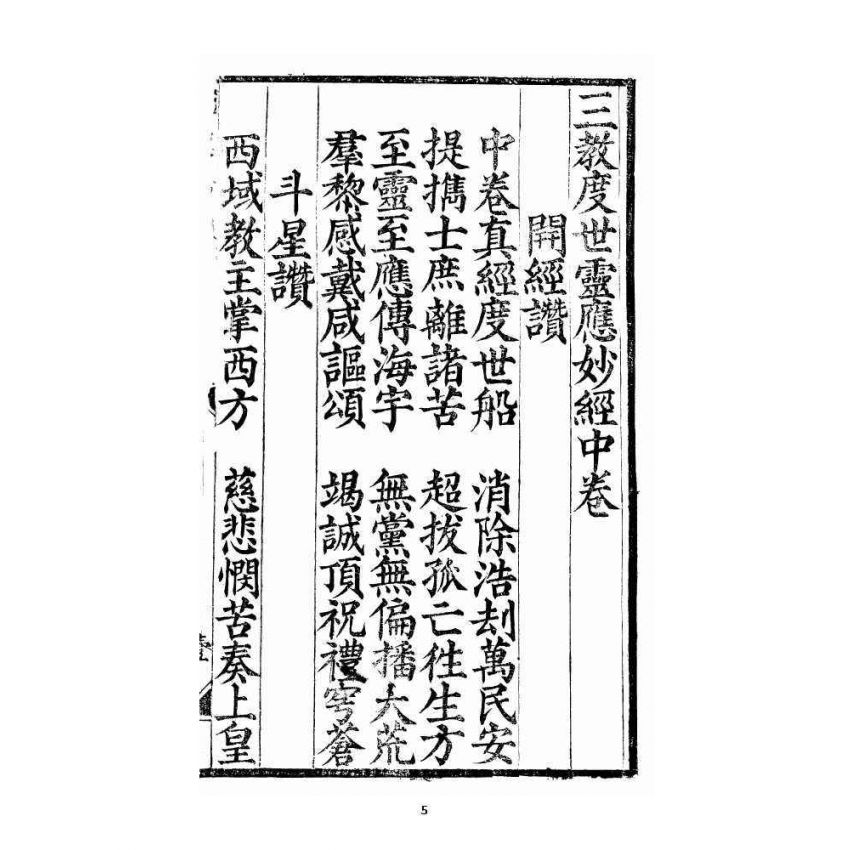 三教度世靈應妙經中卷
開經讚
中卷真經度世船　消除浩刦萬民安
提攜士庶離諸苦　超拔孤亡徃生方
至靈至應傳海宇　無黨無偏播大荒
羣黎感戴咸謳頌　竭誠頂祝禮穹蒼
斗星讚
西域教主掌西方　慈悲憫苦奏上皇
5